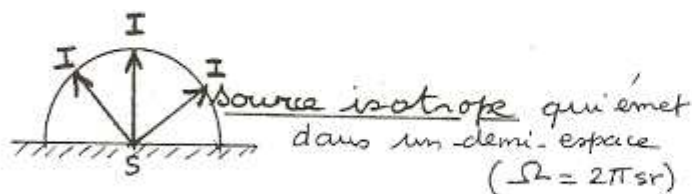 I
I
I
S
source isotrope qui émet
dans un demi-espace
(Ω = 2π sr)